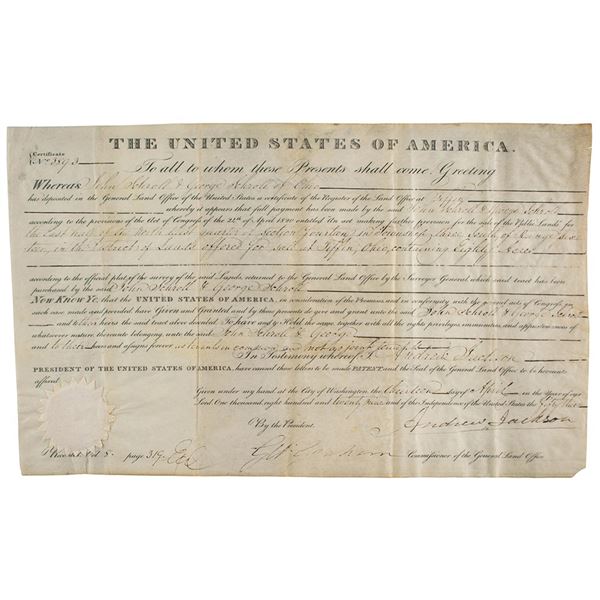 THE UNITED STATES OF AMERICA.
Certificate
No. 3893
To all to whom these Presents shall come, Greeting
Whereas John Schroll & George Schroll of Ohio
has deposited in the General Land Office of the United States a certificate of the Register of the Land Office at Tiffin
whereby it appears that full payment has been made by the said John Schroll & George Schroll
according to the provisions of the Act of Congress of the 24th of April 1820 entitled An act making further provision for the sale of the Public Lands for
the East half of the North East quarter of section fourteen, in Township three South, of Range
in the District of Lands offered for sale at Tiffin, Ohio, containing Eighty Acres
according to the official plat of the survey of the said Lands, returned to the General Land Office by the Surveyor General, which said tract has been
purchased by the said John Schroll & George Schroll
Now Know Ye that the UNITED STATES OF AMERICA, in consideration of the Premises, and in conformity with the several acts of Congress, in
such case made and provided have Given and Granted and by these presents do give and grant unto the said John Schroll & George Schroll
and their heirs the said tract above described To have and to Hold the same, together with all the rights, privileges, immunities, and appurtenances of
whatsoever nature, thereunto belonging, unto the said John Schroll & George
and to their heirs and assigns forever as tenants in common and not as joint tenants
In Testimony whereof I, Andrew Jackson
PRESIDENT OF THE UNITED STATES OF AMERICA, have caused these letters to be made PATENT, and the Seal of the General Land Office to be hereunto
affixed
Given under my hand at the City of Washington, the day of April in the Year of our
Lord One thousand eight hundred and twenty nine and of the Independence of the United States the fifty third
By the President
Andrew Jackson
Record Vol 8 page 319
G W Graham Commissioner of the General Land Office